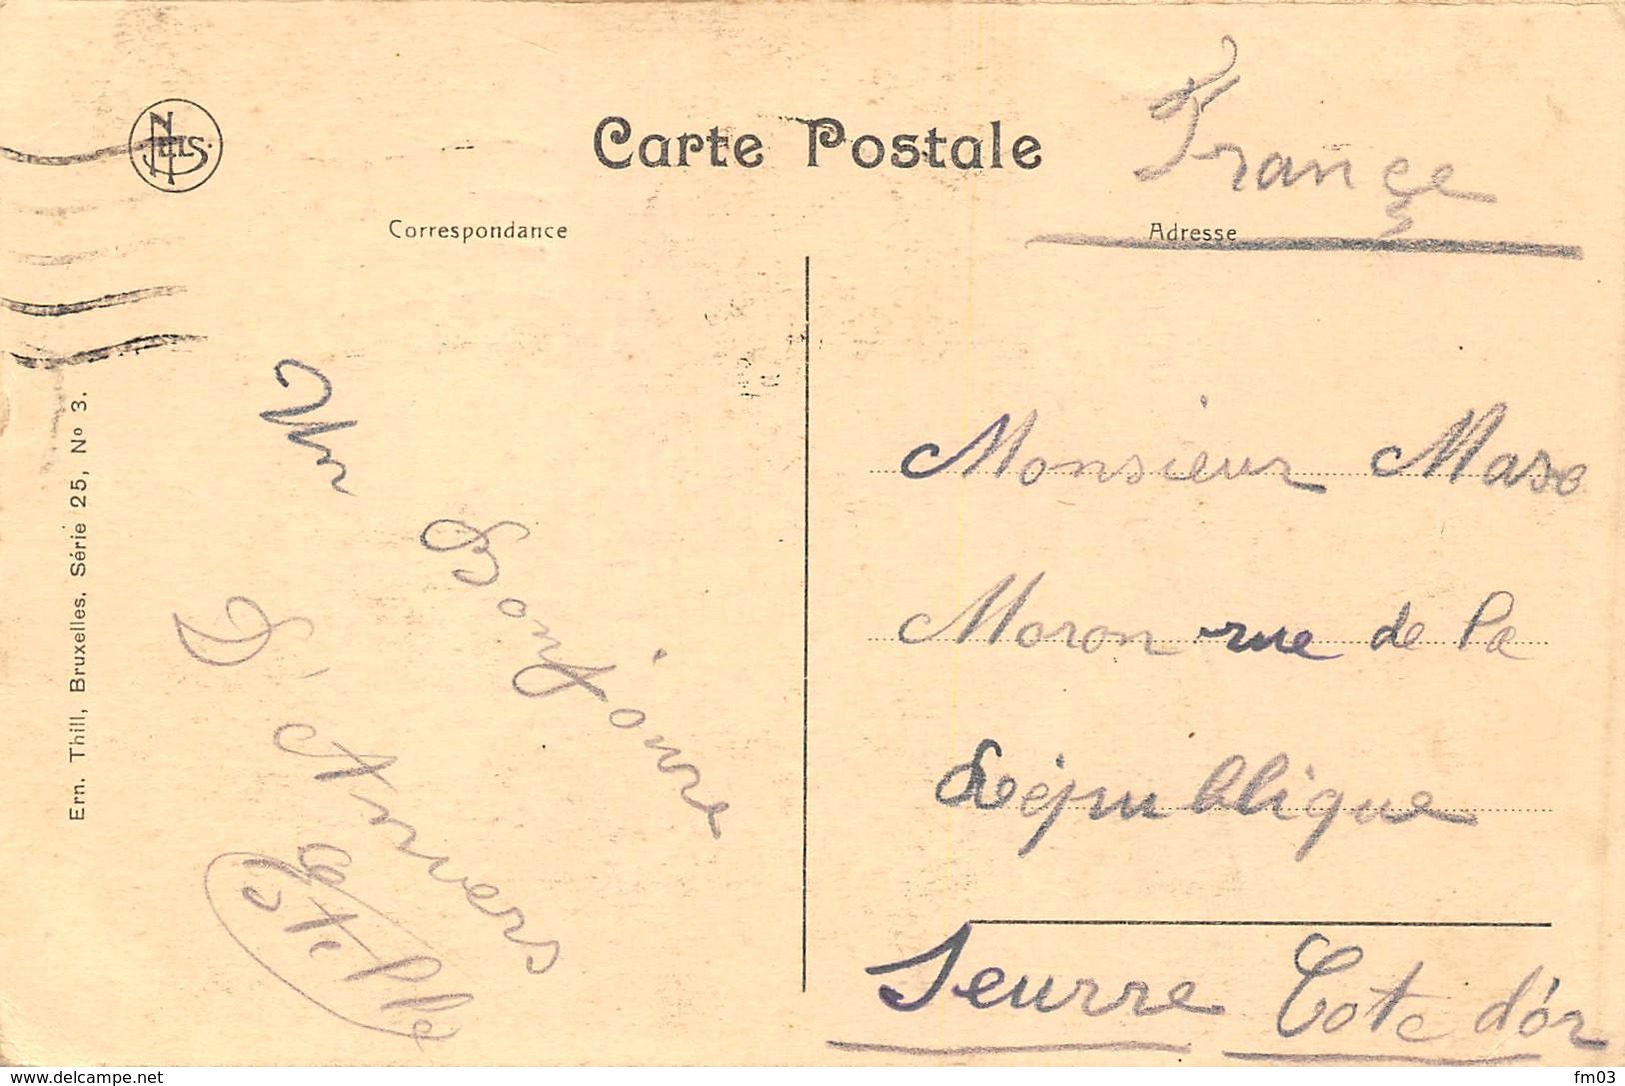 NELS
Carte Postale
France
Correspondance
Adresse
Un
Bonjoure
D'Anvers
Estelle
Monsieur Maso
Moron rue de la
République
Seurre Cote d'or
Ern. Thill, Bruxelles. Série 25, Nº 3.
www.delcampe.net
fm03